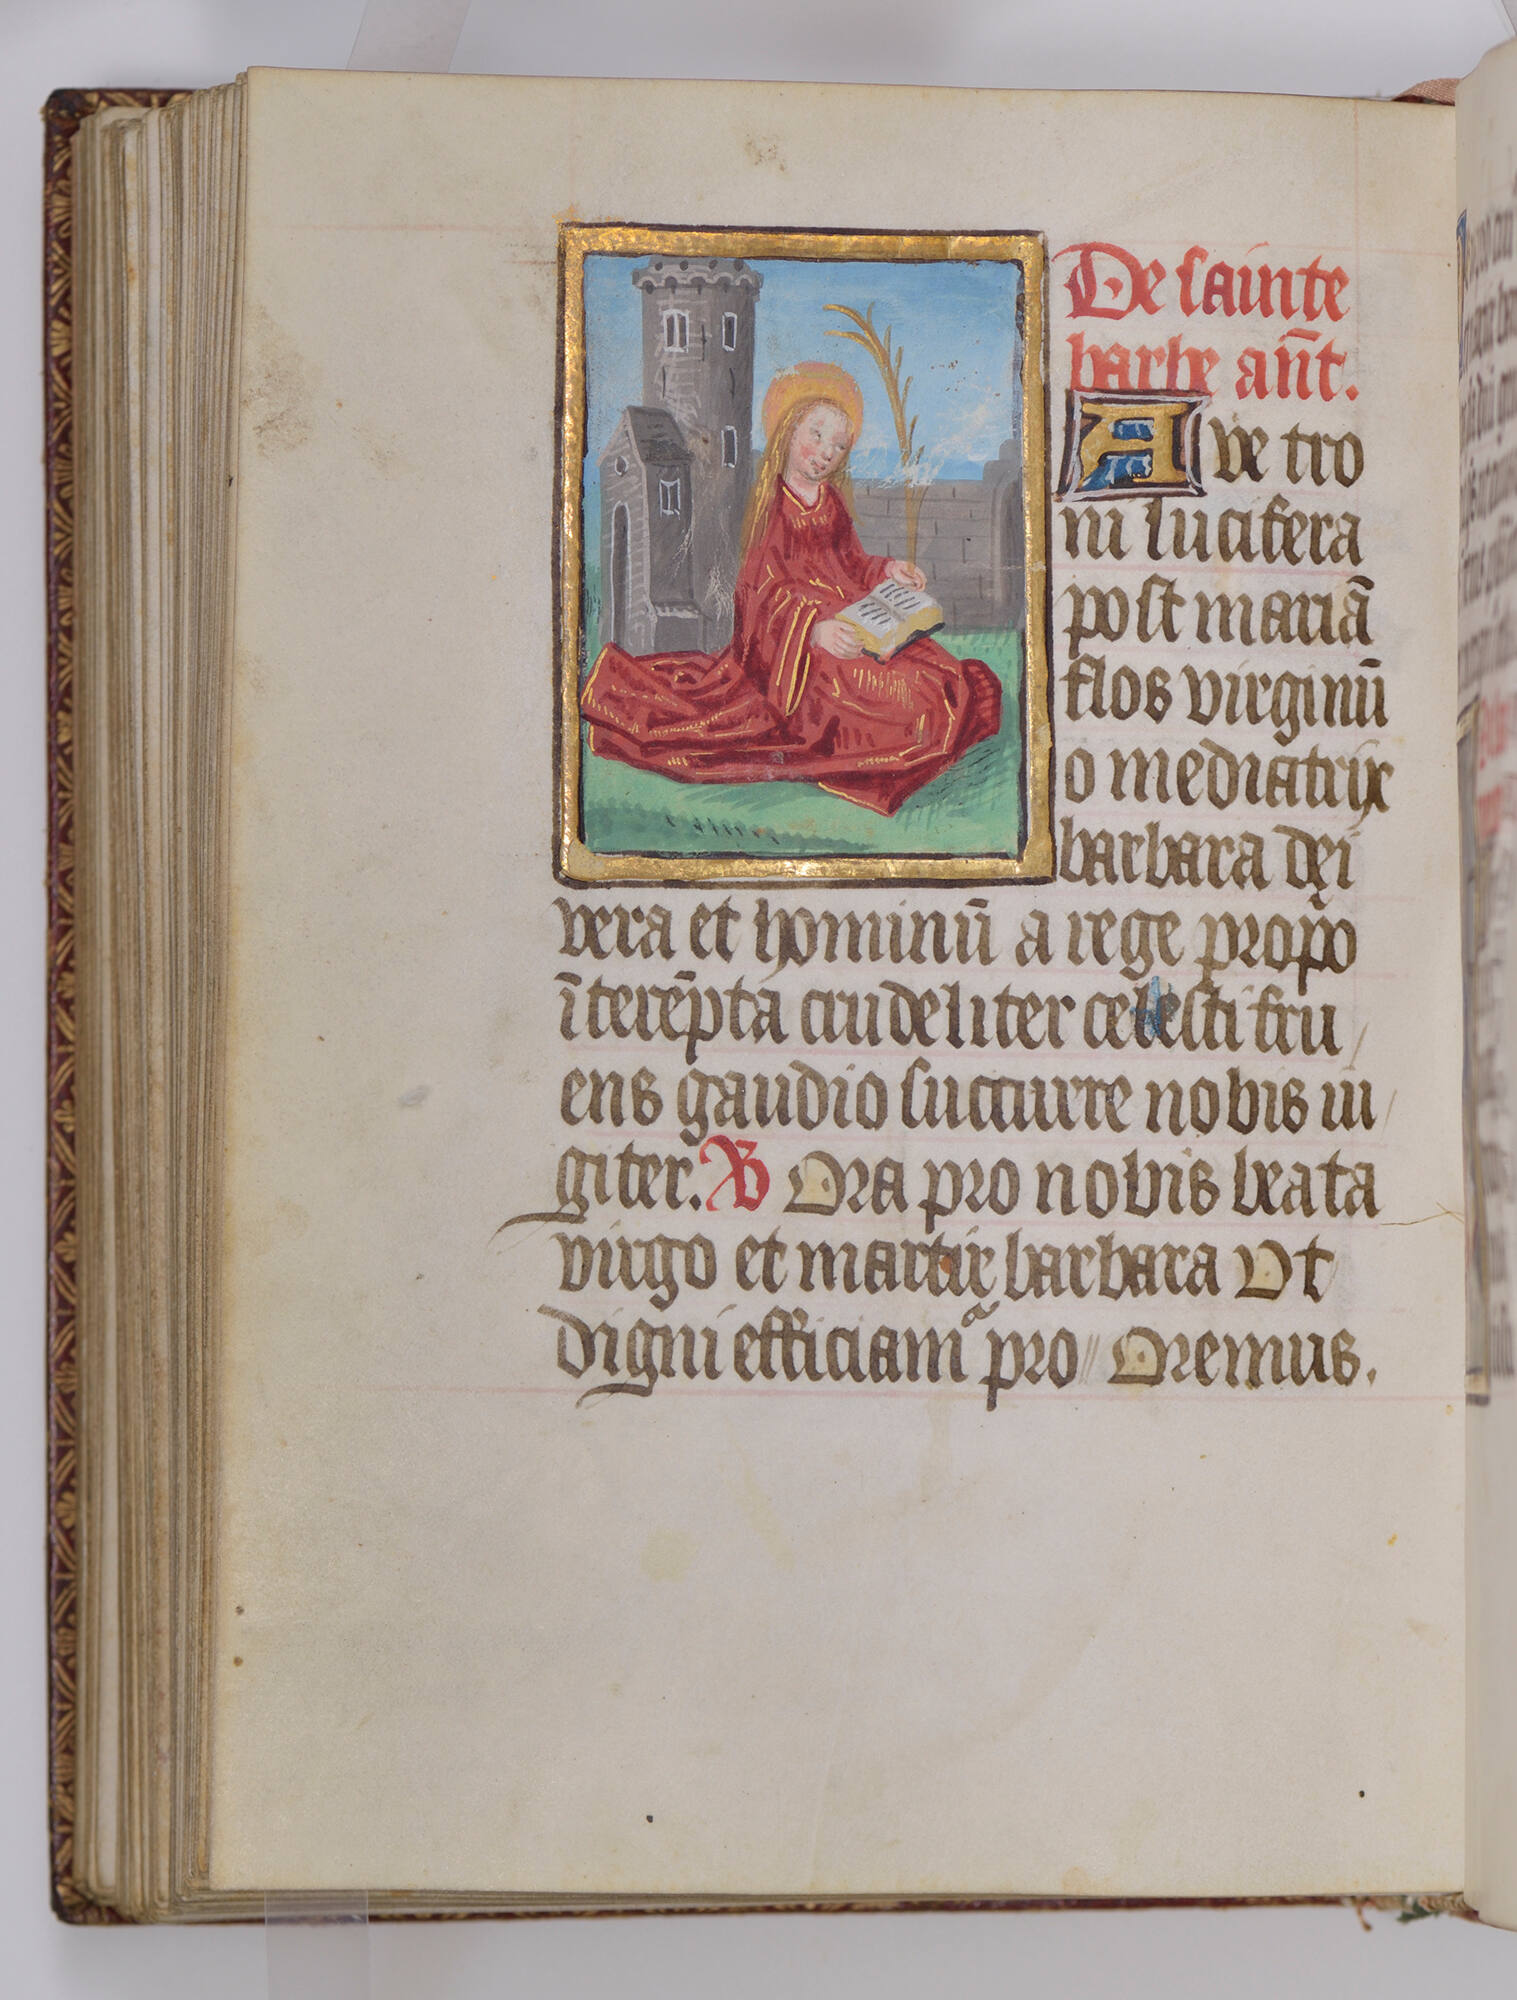 De sainte
barbe an̄t.
Ave tro
ni lucifera
post mariā
flos virginū
o mediatrix
barbara dei
vera et hominū a rege propo
īterēpta crudeliter celesti fru
ens gaudio succurre nobis iu
giter. Ora pro nobis beata
virgo et martir barbara Ut
digni efficiamᷓ pro Oremus.